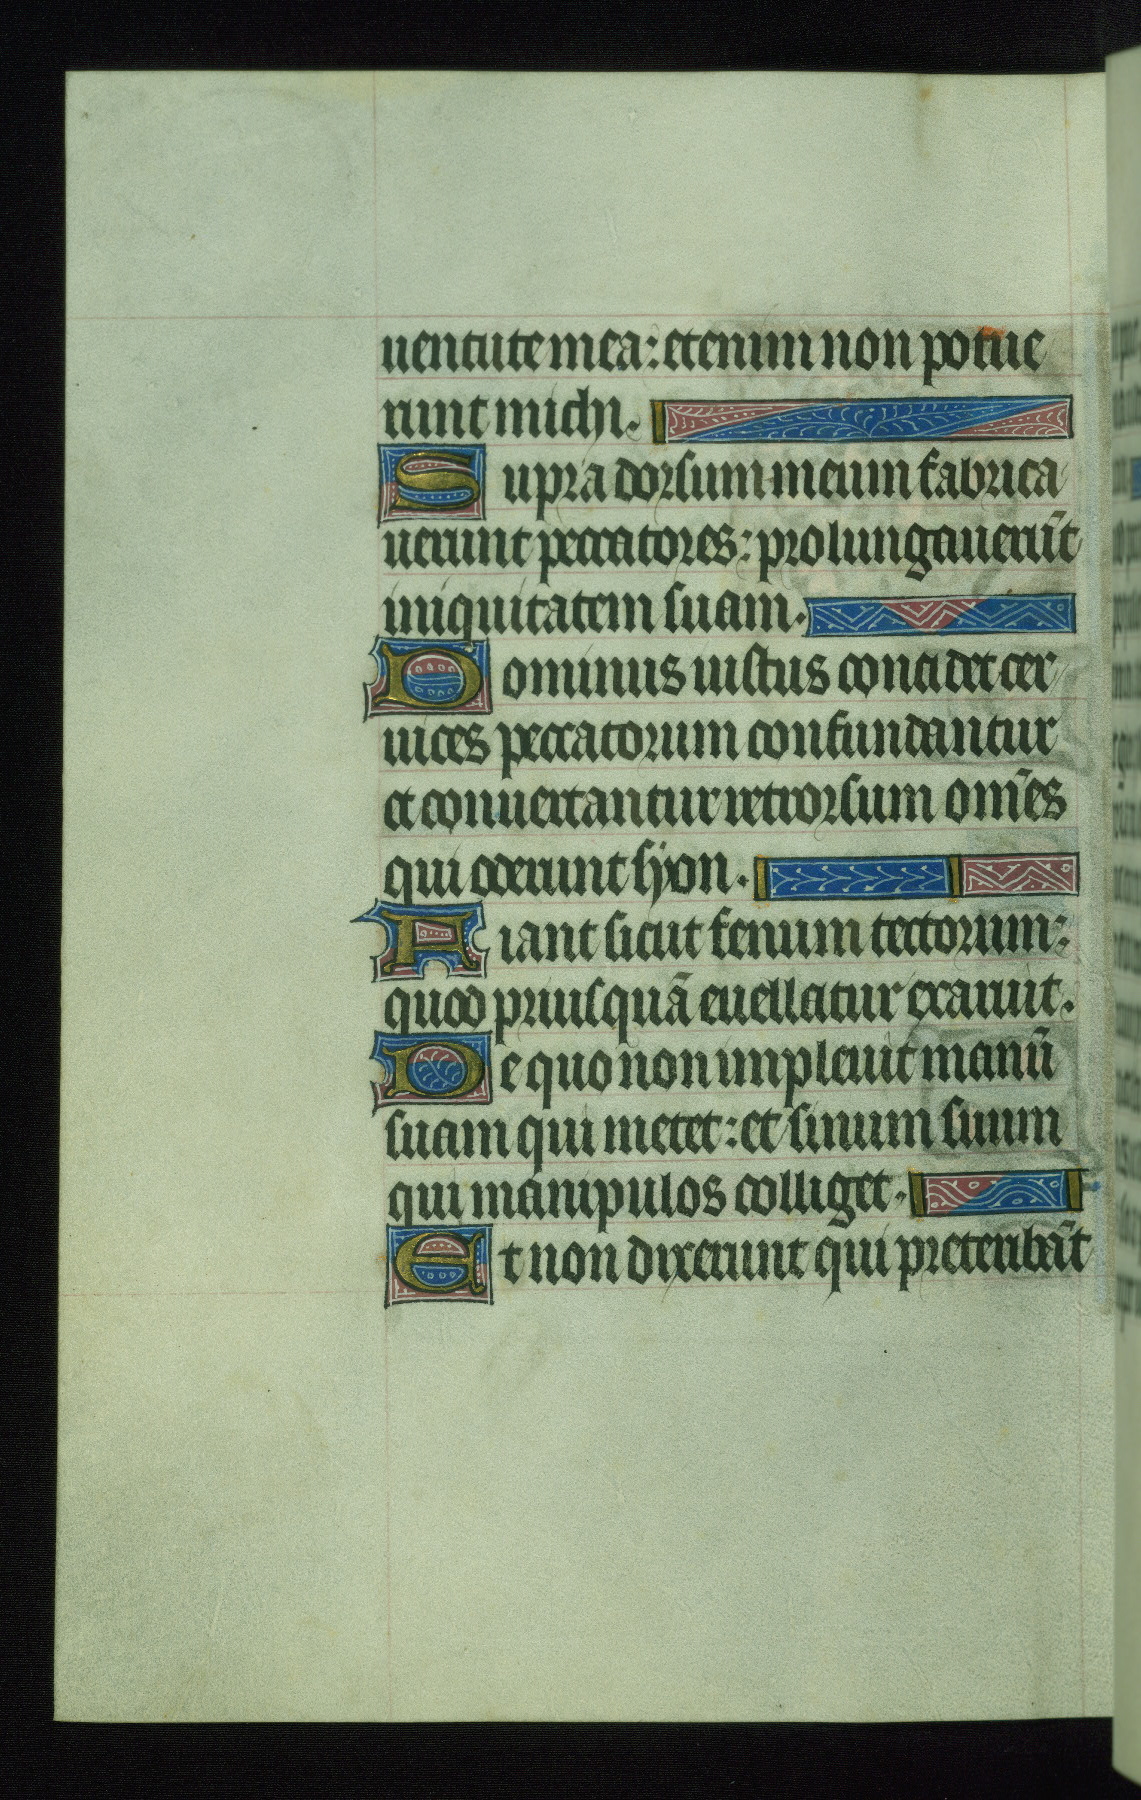 uentute mea: etenim non potue
runt michi.
Supra dorsum meum fabrica
uerunt peccatores: prolungauerūt
iniquitatem suam.
Dominus iustus concidet cer
uices peccatorum confundantur
et conuertantur retrorsum om̄es
qui oderunt syon.
Fiant sicut fenum tectorum:
quod priusquā euellatur exaruit.
De quo non impleuit manū
suam qui metet: et sinum suum
qui manipulos colliget.
Et non dixerunt qui preteribāt